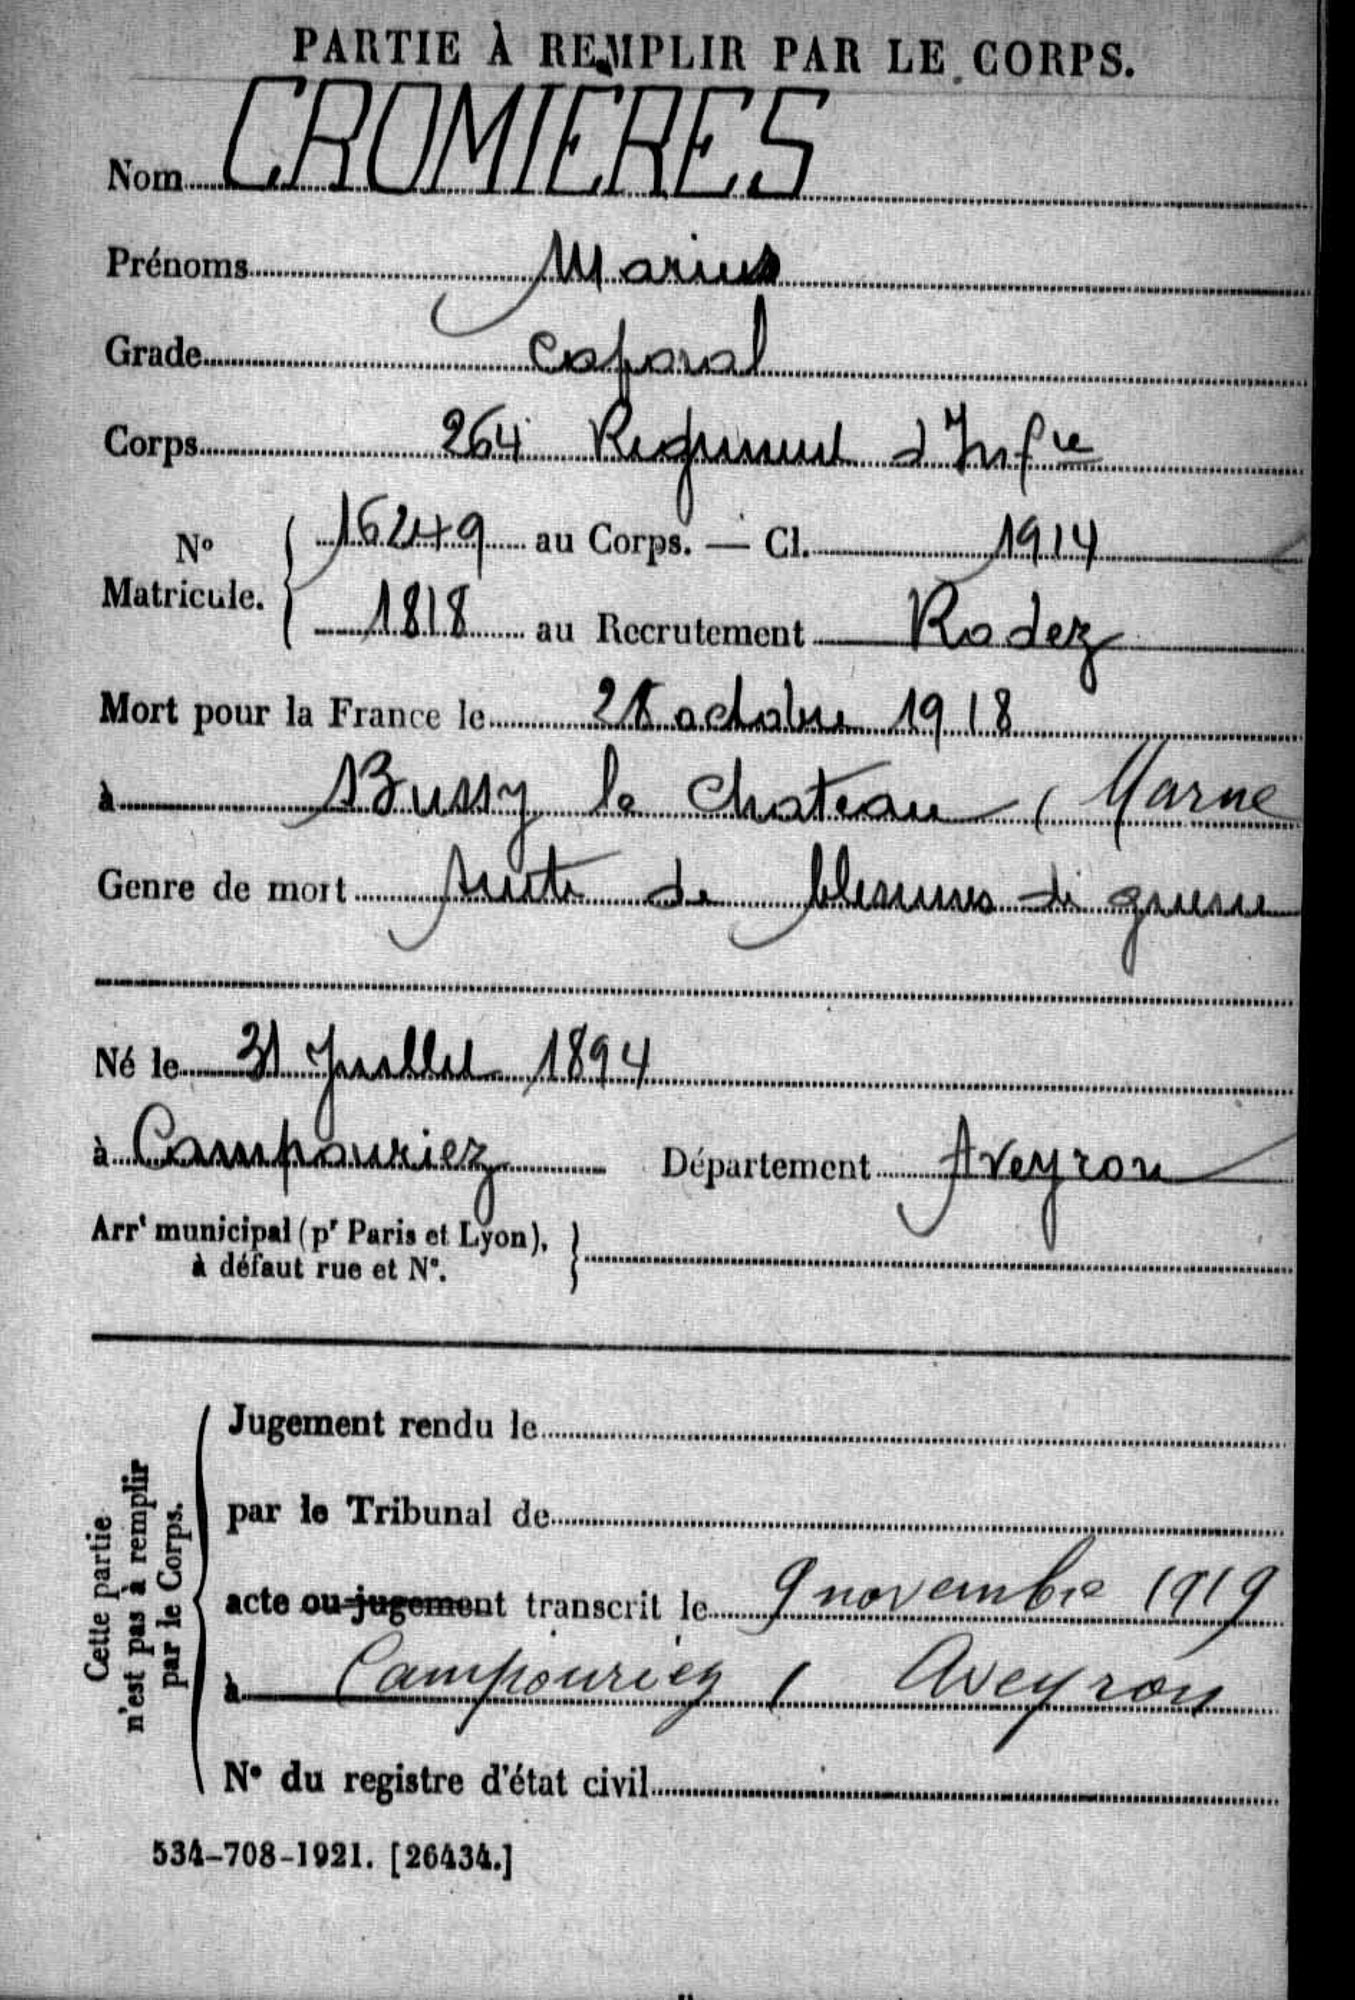 PARTIE À REMPLIR PAR LE CORPS.
Nom CROMIERES
Prénoms Marius
Grade Caporal
Corps 264 Regiment d'Infie
No Matricule. { 16249 au Corps. — Cl. 1914
1818 au Recrutement Rodez
Mort pour la France le octobre 1918
à Bussy le Chateau (Marne
Genre de mort suite de blessures de guerre
Né le 31 Juillet 1894
à Campouriez Département Aveyron
Arrt municipal (pr Paris et Lyon),
à défaut rue et N°.
Cette partie
n'est pas à remplir
par le Corps.
Jugement rendu le
par le Tribunal de
acte ou jugement transcrit le 9 novembre 1919
à Campouriez, Aveyron
N° du registre d'état civil
534-708-1921. [26434.]